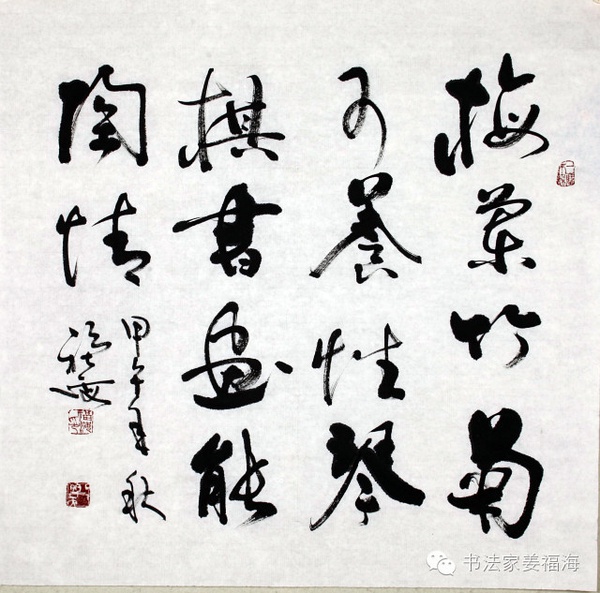 梅兰竹菊
可養性琴
棋書画能
陶情
甲午年秋
福海
书法家姜福海